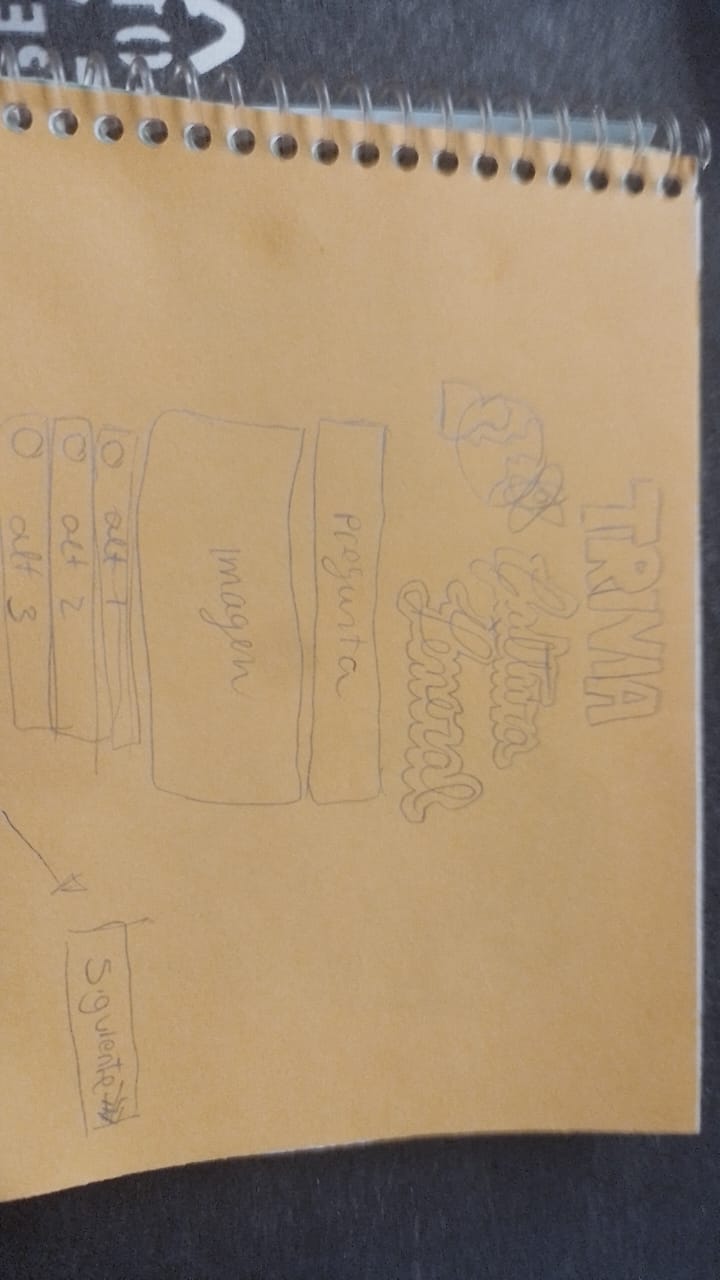 TRIVIA
Cultura
General
pregunta
imagen
alt 1
alt 2
alt 3
Siguiente >>>